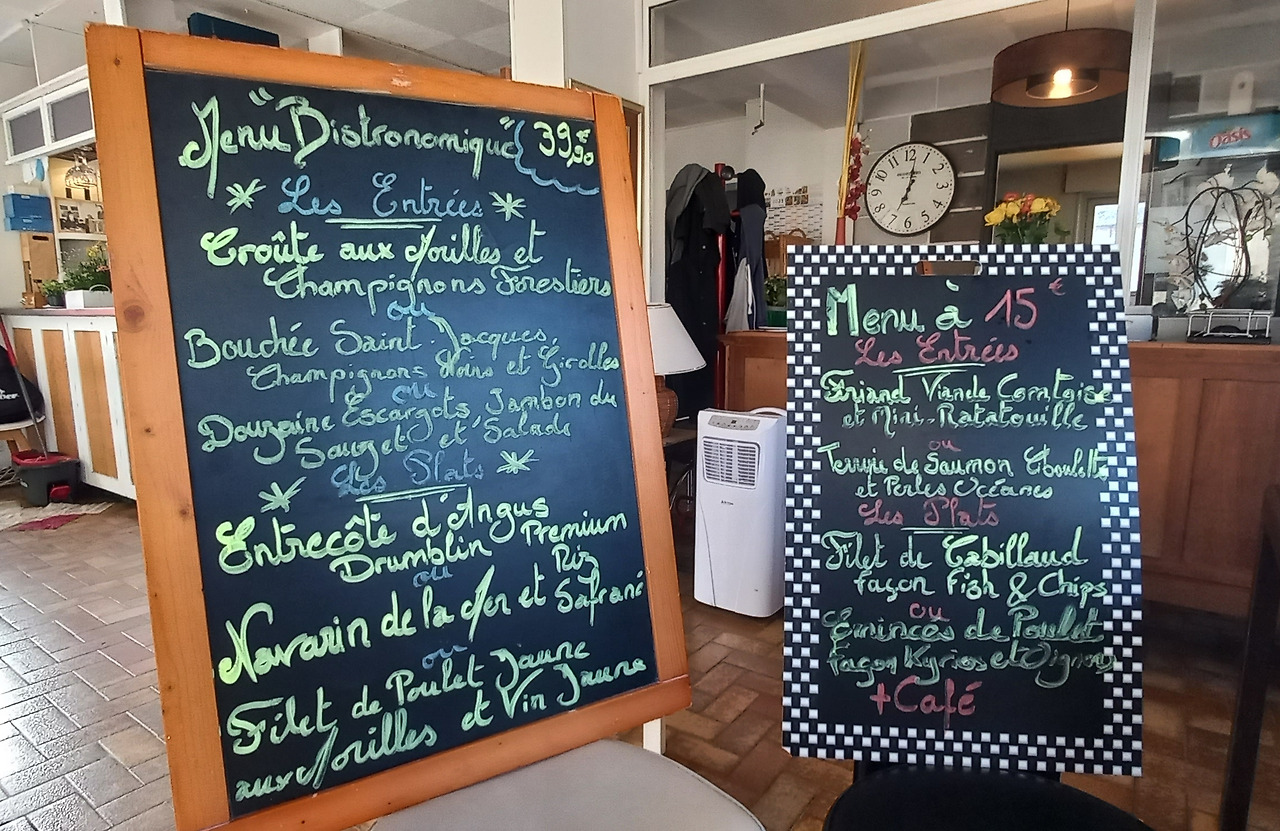 Menu "Bistronomique" 39,90€
Les Entrées
Croûte aux Morilles et
Champignons Forestiers
ou
Bouchée Saint-Jacques,
Champignons Noirs et Girolles
ou
Douzaine Escargots, Jambon du
Sauget et Salade
Les Plats
Entrecôte d'Angus
Drumblin Premium
ou
Navarin de la Mer et Riz Safrané
ou
Filet de Poulet Jaune
aux Morilles et Vin Jaune
Menu à 15€
Les Entrées
Friand Viande Comtoise
et Mini-Ratatouille
ou
Terrine de Saumon Ciboulette
et Perles Océanes
Les Plats
Filet de Cabillaud
façon Fish & Chips
ou
Emincés de Poulet
façon Kyrios et Oignons
+Café
Oasis
12
1
2
3
4
5
6
7
8
9
10
11